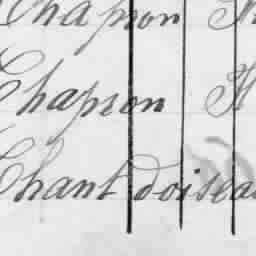 Chapron
Chapron H
Chant doisea